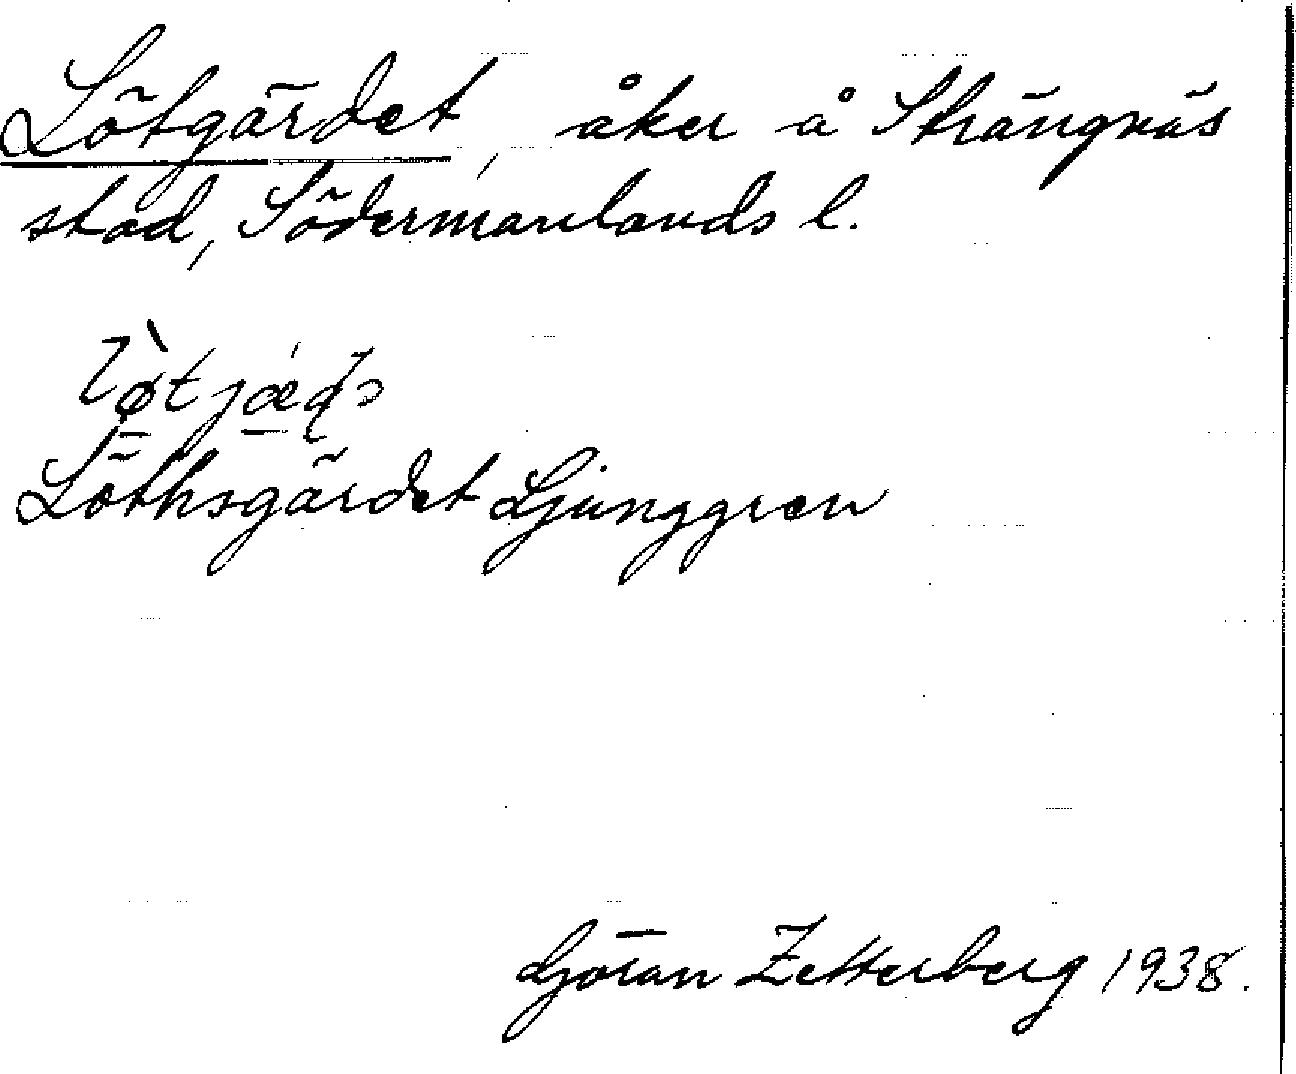 Lötgärdet, åker å Strängnäs
stad, Södermanlands l.
Löthsgärdet Ljunggren
Göran Zetterberg 1938.